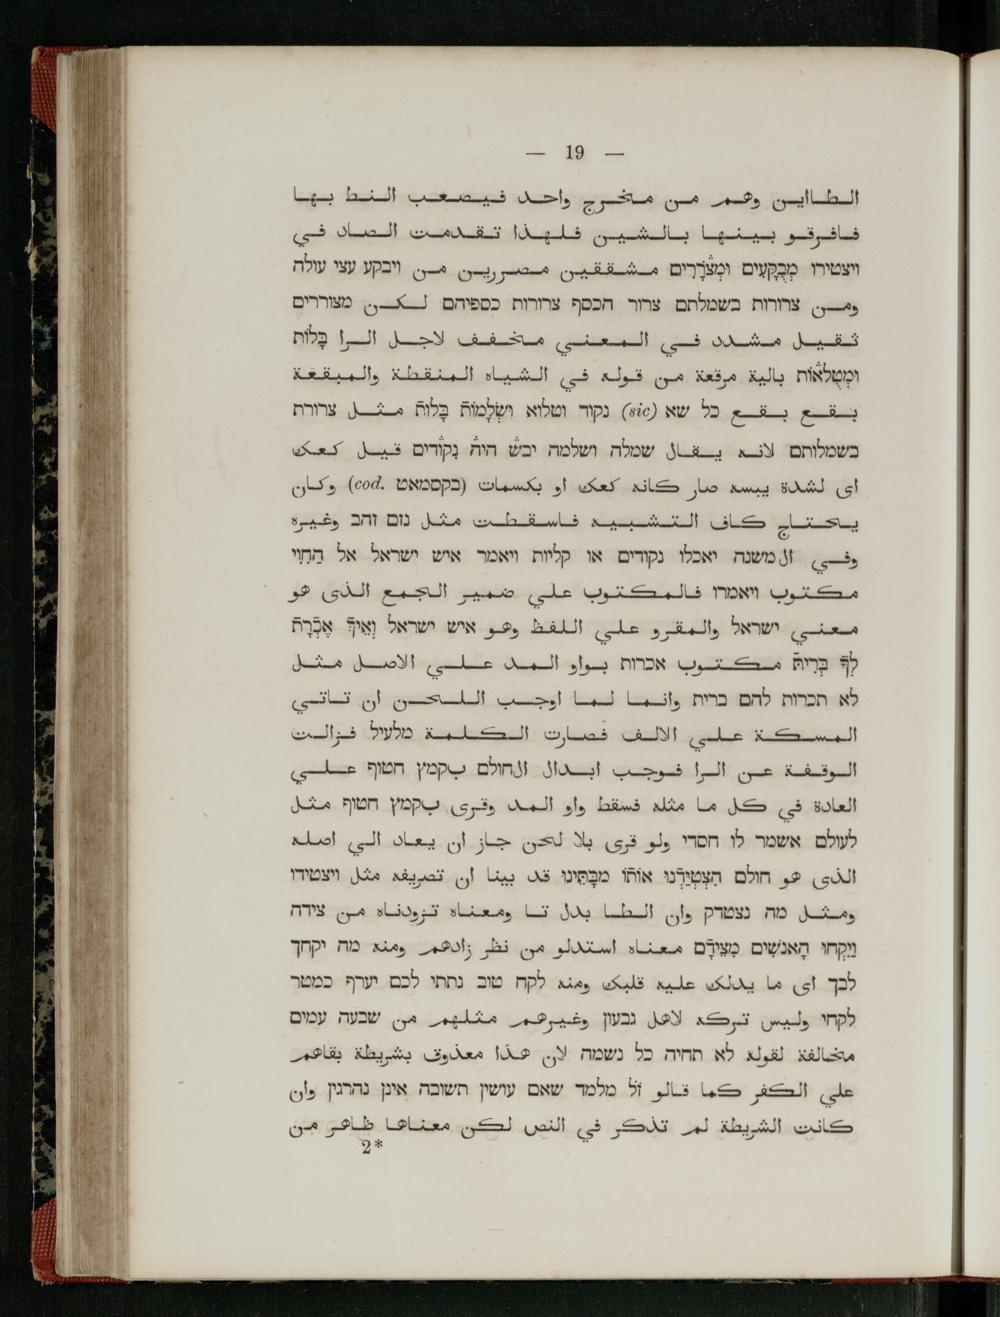 — 19 —
الطااين وهم من مخرج واحد فيصعب النط بها
فافرقو بينها بالشين فلهذا تقدمت الصاد في
ויצטירו מְבֻקָּעִים וּמְצֹרָרִים مشققين مصررين من ויבקע עצי עולה
ومن צרורות בשמלתם צרור הכסף צרורות כספיהם لكن מצוררים
ثقيل مشدد في المعني مخفف لاجل الرا בָּלוֹת
וּמְטֻלָּאוֹת بالية مرقعة من قوله في الشياه المنقطة والمبقعة
بقع بقع כל שא (sic) נקוד וטלוא וּשְׂלָמוֹת בָּלוֹת مثل צרורת
בשמלותם لانه يقال שמלה ושלמה יבש היה נִקֻּדִים قيل كعك
اى لشدة يبسه صار كانه كعك او بكسمات (בקסמאט cod.) وكان
يحتاج كاف التشبيه فاسقطت مثل נזם זהב وغيره
وفي الמשנה יאכלו נקודים או קליות ויאמר איש ישראל אל הַחִוִּי
مكتوب ויאמרו فالمكتوب علي ضمير الجمع الذى هو
معني ישראל والمقرو علي اللفظ وهو איש ישראל וְאֵיךְ אֶכְרָת
לְךָ בְּרִית مكتوب אכרות بواو المد علي الاصل مثل
לא תכרות להם ברית وانما لما اوجب اللحن ان تاتي
المسكة علي الالف فصارت الكلمة מלעיל فزالت
الوقفة عن الرا فوجب ابدال الחולם بקמץ חטוף علي
العادة في كل ما مثله فسقط واو المد وقرى بקמץ חטוף مثل
לעולם אשמר לו חסדי ولو قرى بلا لحن جاز ان يعاد الي اصله
الذى هو חולם הִצְטַיַּדְנוּ אוֹתוֹ מִבָּתֵּינוּ قد بينا ان تصريفه مثل ויצטידו
ومثل מה נצטדק وان الطا بدل تا ومعناه تزودناه من צידה
וַיִּקְחוּ הָאֲנָשִׁים מִצֵּידָם معناه استدلو من نظر زادهم ومنه מה יקחך
לבך اى ما يدلك عليه قلبك ومنه לקח טוב נתתי לכם יערף כמטר
לקחי وليس تركه لاهل גבעון وغيرهم مثلهم من שבעה עמים
مخالفة لقوله לא תחיה כל נשמה لان هذا معذوق بشريطة بقاهم
علي الكفر كما قالو זל מלמד שאם עושין תשובה אינן נהרגין وان
كانت الشريطة لم تذكر في النص لكن معناها ظاهر من
2*